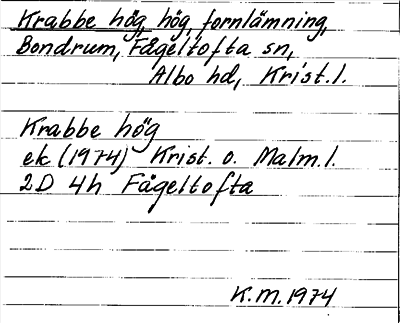 Krabbe hög, hög, fornlämning,
Bondrum, Fågeltofta sn,
Albo hd, Krist. l.
Krabbe hög
ek (1974) Krist. o. Malm. l.
2D 4h Fågeltofta
K.M. 1974